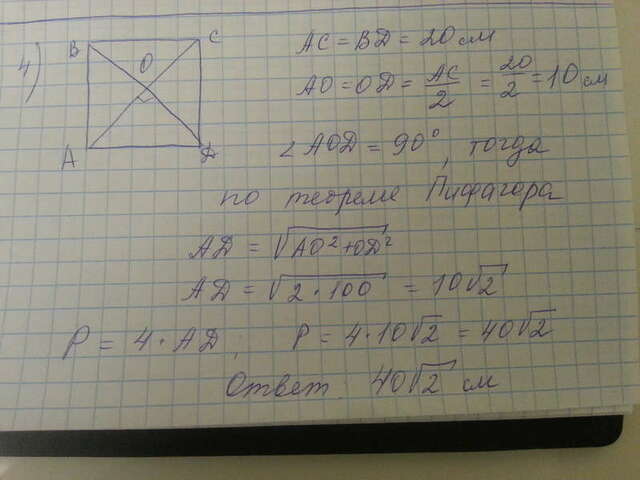 4)
B
C
O
A
D
AC = BD = 20 см
AO = OD = AC/2 = 20/2 = 10 см
∠ AOD = 90°, тогда
по теореме Пифагора
AD = √(AO² + OD²)
AD = √(2 · 100) = 10√2
P = 4 · AD; P = 4 · 10√2 = 40√2
Ответ: 40√2 см